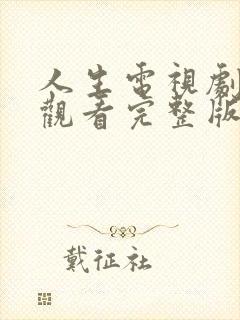 人生電視劇
觀看完整版
戴征社